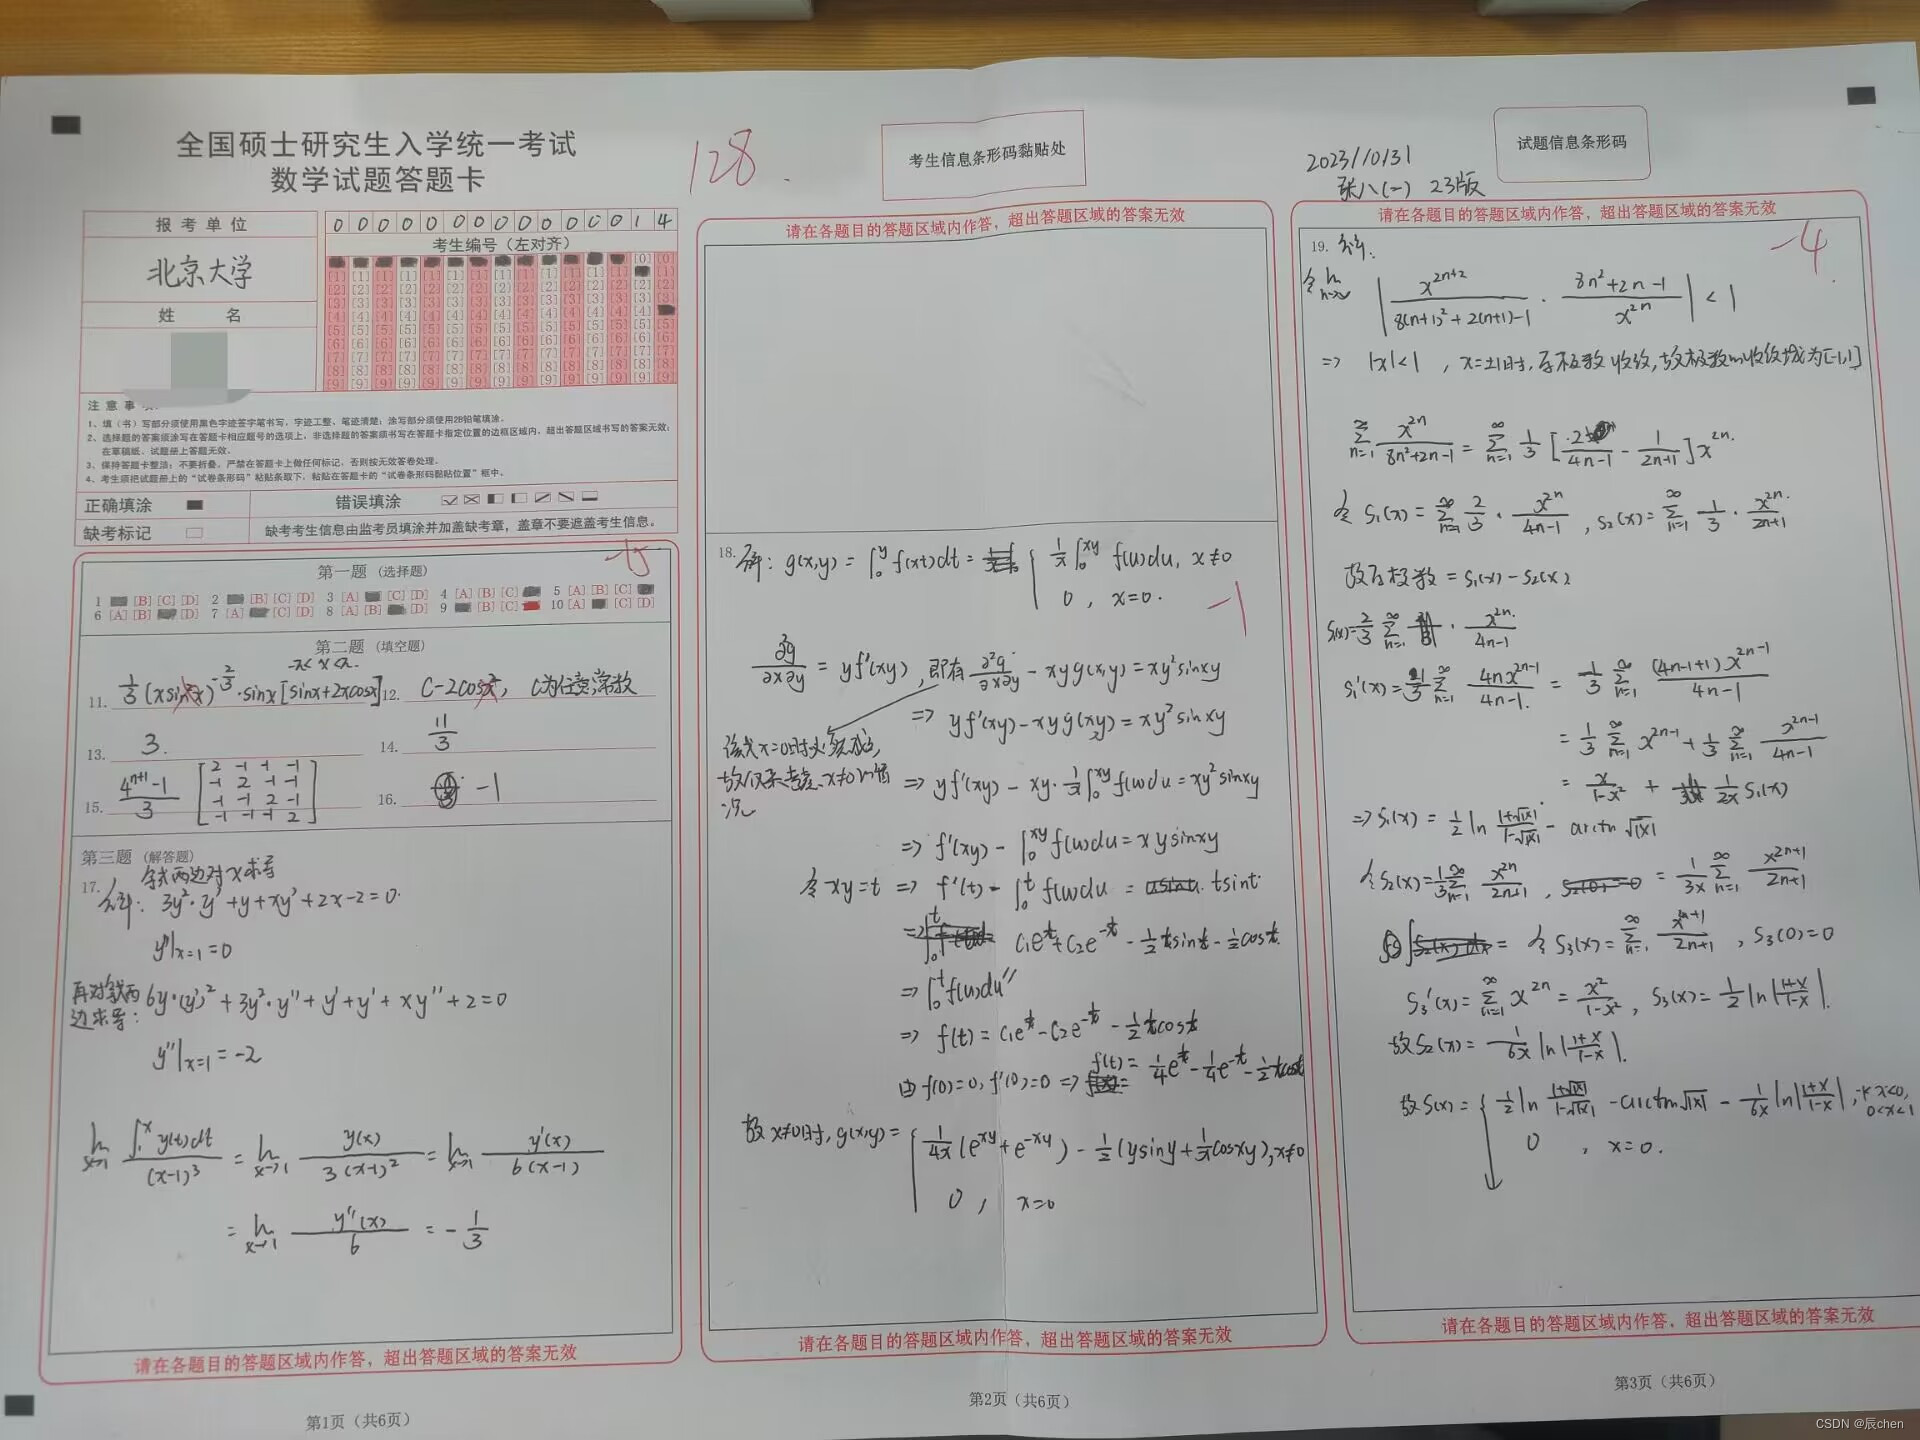 全国硕士研究生入学统一考试
数学试题答题卡
128
考生信息条形码黏贴处
2023/10/31
张八(一) 23版
试题信息条形码
报考单位
北京大学
姓 名
0 0 0 0 0 0 0 0 0 0 0 0 0 1 4
考生编号（左对齐）
注意事
1、填（书）写部分须使用黑色字迹签字笔书写，字迹工整、笔迹清楚；涂写部分须使用2B铅笔填涂。
2、选择题的答案须涂写在答题卡相应题号的选项上，非选择题的答案须书写在答题卡指定位置的边框区域内，超出答题区域书写的答案无效；
在草稿纸、试题册上答题无效。
3、保持答题卡整洁；不要折叠。严禁在答题卡上做任何标记，否则按无效答卷处理。
4、考生须把试题册上的“试卷条形码”粘贴条取下，粘贴在答题卡的“试卷条形码黏贴位置”框中。
正确填涂
错误填涂
缺考标记
缺考考生信息由监考员填涂并加盖缺考章，盖章不要遮盖考生信息。
第一题 (选择题)
-15
1 [B] [C] [D] 2 [B] [C] [D] 3 [A] [C] [D] 4 [A] [B] [C] 5 [A] [B] [C]
6 [A] [B] [D] 7 [A] [C] [D] 8 [A] [B] [D] 9 [B] [C] 10 [A] [C] [D]
第二题 (填空题)
-π<x<π.
11. 1/3 (xsin²x)^(-2/3)·sinx[sinx+2xcosx] 12. C-2cosx², C为任意常数
13. 3. 14. 11/3
15. (4^(n+1)-1)/3 [2 -1 -1 -1
-1 2 -1 -1
-1 -1 2 -1
-1 -1 -1 2] 16. -1
第三题 (解答题)
等式两边对x求导
17. 解: 3y²·y'+y+xy'+2x-2=0.
y'|x=1=0
再对等式两边求导: 6y·(y')²+3y²·y''+y'+y'+xy''+2=0
y''|x=1=-2
lim x→1 ∫₁ˣ y(t)dt/(x-1)³ = lim x→1 y(x)/3(x-1)² = lim x→1 y'(x)/6(x-1)
= lim x→1 y''(x)/6 = -1/3
请在各题目的答题区域内作答，超出答题区域的答案无效
第1页（共6页）
请在各题目的答题区域内作答，超出答题区域的答案无效
18. 解: g(x,y)=∫₀^y f(xt)dt= { 1/x ∫₀^xy f(u)du, x≠0
0, x=0.
-1
∂²g/∂x∂y = yf'(xy), 即有 ∂²g/∂x∂y - xyg(x,y)=xy²sinxy
=> yf'(xy)-xyg(x,y)=xy²sinxy
=> yf'(xy)-xy·1/x ∫₀^xy f(u)du=xy²sinxy
=> f'(xy)-∫₀^xy f(u)du=xysinxy
令xy=t => f'(t)-∫₀^t f(u)du = tsint.
C₁e^t+C₂e^-t - 1/2 tsint - 1/2 cost.
=> ∫₀^t f(u)du"
=> f(t)=C₁e^t-C₂e^-t - 1/2 tcost
由f(0)=0, f'(0)=0 => f(t)= 1/4 e^t - 1/4 e^-t - 1/2 tcost
故x≠0时, g(x,y)= { 1/4x (e^xy+e^-xy) - 1/2(ysiny+1/x cosxy), x≠0
0, x=0
请在各题目的答题区域内作答，超出答题区域的答案无效
第2页（共6页）
请在各题目的答题区域内作答，超出答题区域的答案无效
19. 解.
-4
令lim n→∞ |x^(2n+2)/(8(n+1)²+2(n+1)-1) · (8n²+2n-1)/x^2n|<1
=> |x|<1, x=±1时, 原级数收敛, 故级数的收敛域为[-1,1]
∑n=1^∞ x^2n/(8n²+2n-1) = ∑n=1^∞ 1/3 [2/(4n-1) - 1/(2n+1)]x^2n.
令S₁(x)=∑n=1^∞ 2/3 · x^2n/(4n-1), S₂(x)=∑n=1^∞ 1/3 · x^2n/(2n+1)
故原级数=S₁(x)-S₂(x)
S₁(x)=2/3 ∑n=1^∞ · x^2n/(4n-1)
S₁'(x)=1/3 ∑n=1^∞ 4nx^(2n-1)/(4n-1) = 1/3 ∑n=1^∞ (4n-1+1)x^(2n-1)/(4n-1)
= 1/3 ∑n=1^∞ x^(2n-1) + 1/3 ∑n=1^∞ x^(2n-1)/(4n-1)
= x/(1-x²) + 1/2x S₁(x)
=> S₁(x) = 1/2 ln (1+√|x|)/(1-√|x|) - arctan √|x|
令S₂(x)=1/3 ∑n=1^∞ x^2n/(2n+1), = 1/3x ∑n=1^∞ x^(2n+1)/(2n+1)
令S₃(x)=∑n=1^∞ x^(2n+1)/(2n+1), S₃(0)=0
S₃'(x)=∑n=1^∞ x^2n = x²/(1-x²), S₃(x)=1/2 ln|(1+x)/(1-x)|.
故S₂(x)= 1/6x ln|(1+x)/(1-x)|.
故S(x)= { 1/2 ln (1+√|x|)/(1-√|x|) - arctan√|x| - 1/6x ln|(1+x)/(1-x)|, -1<x<0, 0<x<1
0, x=0.
请在各题目的答题区域内作答，超出答题区域的答案无效
第3页（共6页）
CSDN @辰chen